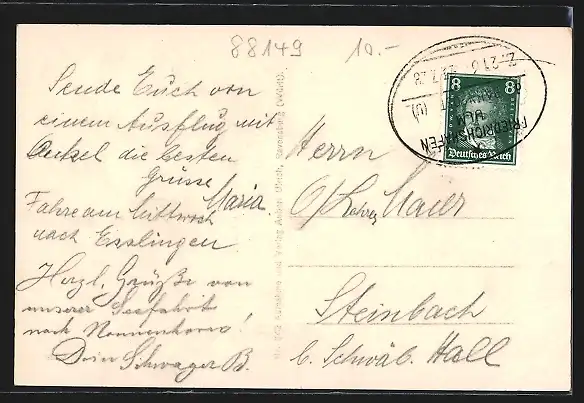 88149
10.-
Sende Euch von
einem Ausflug mit
Onkel die besten
Grüsse
Maria
Fahre am Mittwoch
nach Esslingen
Herzl. Grüße von
unserer Seefahrt
nach Nonnenhorn!
Dein Schwager B.
Herrn
Maier
Steinbach
b. Schwäb. Hall
8 8
Deutsches Reich
FRIEDRICHSHAFEN
ULM
Z. 216
Ravensburg (Württ).